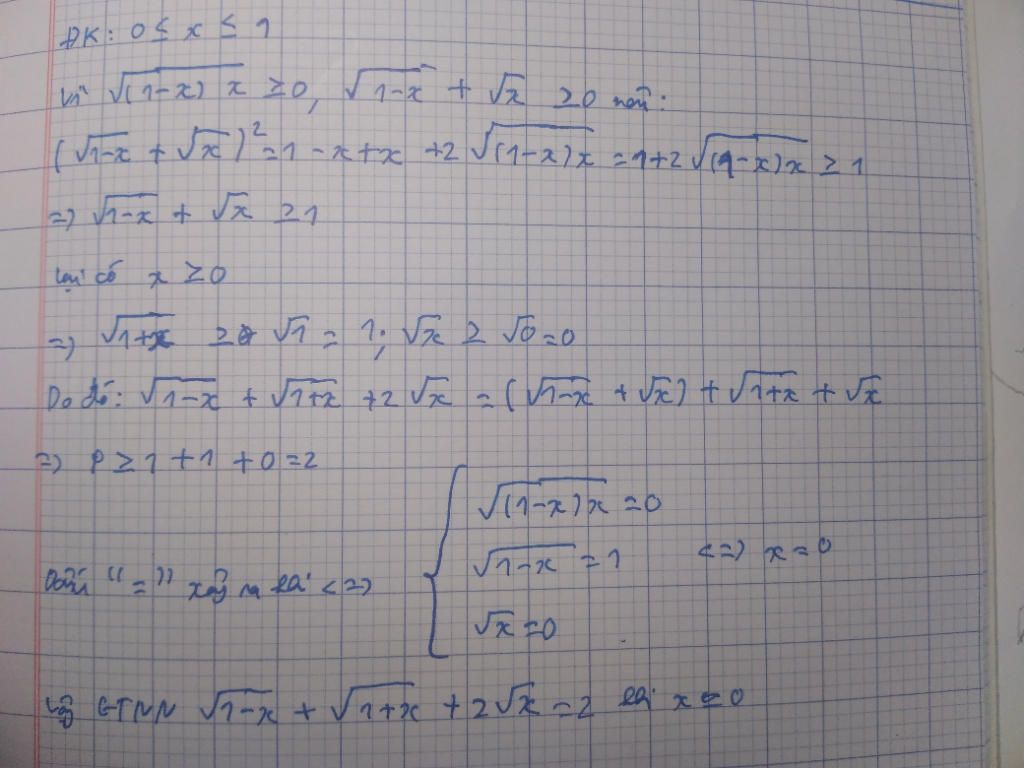 ĐK: 0 ≤ x ≤ 1
Vì √((1-x) x) ≥ 0, √(1-x) + √x ≥ 0 nên:
(√(1-x) + √x)² = 1 - x + x + 2√((1-x)x) = 1 + 2√((1-x)x) ≥ 1
=> √(1-x) + √x ≥ 1
Lại có x ≥ 0
=> √(1+x) ≥ √1 = 1; √x ≥ √0 = 0
Do đó: √(1-x) + √(1+x) + 2√x = (√(1-x) + √x) + √(1+x) + √x
=> P ≥ 1 + 1 + 0 = 2
Dấu "=" xảy ra khi <=> { √((1-x)x) = 0
√(1-x) = 1 <=> x = 0
√x = 0
Vậy GTNN √(1-x) + √(1+x) + 2√x = 2 khi x = 0